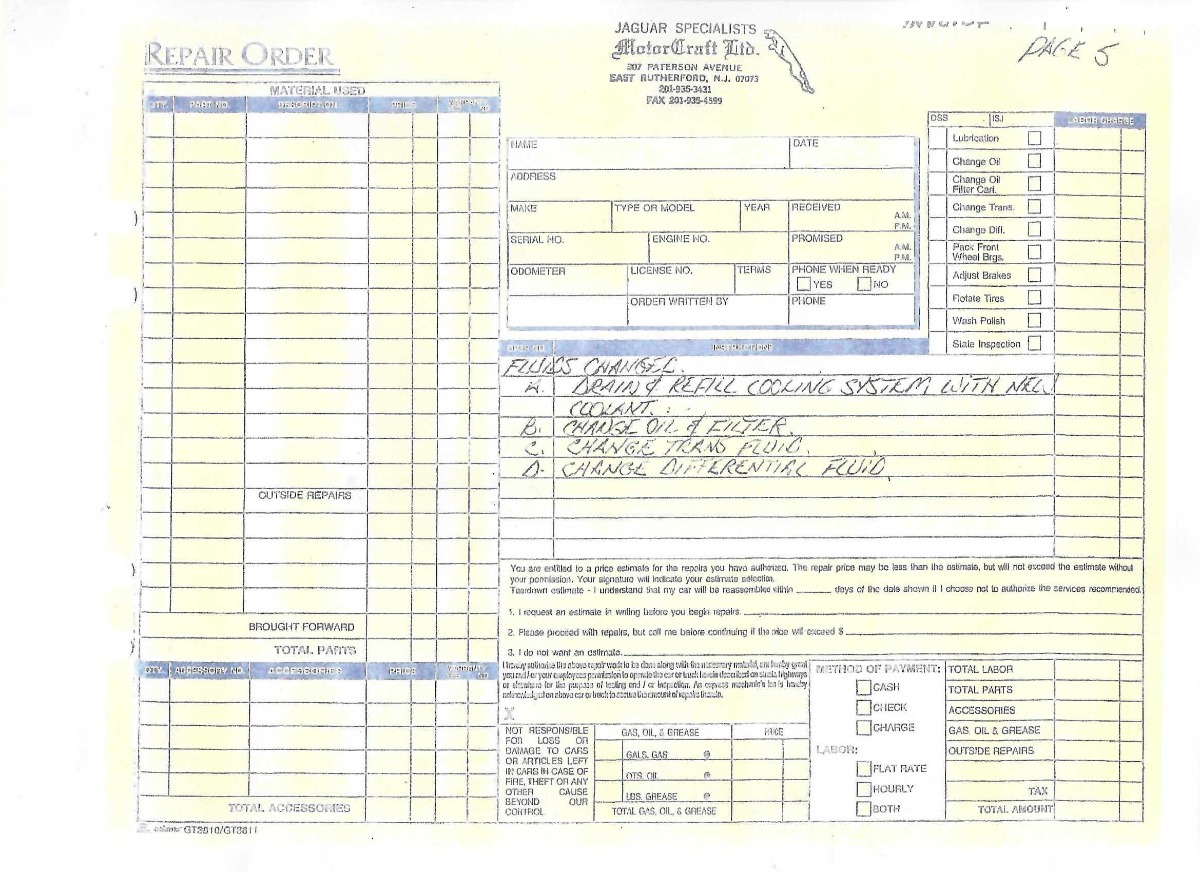 JAGUAR SPECIALISTS
MotorCraft Ltd.
207 PATERSON AVENUE
EAST RUTHERFORD, N.J. 07073
201-935-3431
FAX 201-935-4599
PAGE 5
REPAIR ORDER
MATERIAL USED
QTY. PART NO. DESCRIPTION PRICE
OUTSIDE REPAIRS
BROUGHT FORWARD
TOTAL PARTS
QTY. ACCESSORY NO. ACCESSORIES PRICE
TOTAL ACCESSORIES
GT3810/GT3811
NAME DATE
ADDRESS
MAKE TYPE OR MODEL YEAR RECEIVED A.M. P.M.
SERIAL NO. ENGINE NO. PROMISED A.M. P.M.
ODOMETER LICENSE NO. TERMS PHONE WHEN READY
YES NO
ORDER WRITTEN BY PHONE
DSS ISJ LABOR CHARGE
Lubrication
Change Oil
Change Oil
Filter Cart.
Change Trans.
Change Diff.
Pack Front
Wheel Brgs.
Adjust Brakes
Rotate Tires
Wash Polish
State Inspection
INSTRUCTIONS
FLUIDS CHANGE.
A. DRAIN & REFILL COOLING SYSTEM, WITH NEW
COOLANT.
B. CHANGE OIL & FILTER.
C. CHANGE TRANS FLUID.
D. CHANGE DIFFERENTIAL FLUID
You are entitled to a price estimate for the repairs you have authorized. The repair price may be less than the estimate, but will not exceed the estimate without
your permission. Your signature will indicate your estimate selection.
Teardown estimate - I understand that my car will be reassembled within ______ days of the date shown if I choose not to authorize the services recommended.
1. I request an estimate in writing before you begin repairs.
2. Please proceed with repairs, but call me before continuing if the price will exceed $
3. I do not want an estimate.
I hereby authorize the above repair work to be done along with the necessary material, and hereby grant
you and / or your employees permission to operate the car or truck herein described on streets, highways
or elsewhere for the purpose of testing and / or inspection. An express mechanic's lien is hereby
acknowledged on above car or truck to secure the amount of repairs thereto.
X
NOT RESPONSIBLE
FOR LOSS OR
DAMAGE TO CARS
OR ARTICLES LEFT
IN CARS IN CASE OF
FIRE, THEFT OR ANY
OTHER CAUSE
BEYOND OUR
CONTROL.
GAS, OIL, & GREASE PRICE
GALS. GAS @
QTS. OIL @
LBS. GREASE @
TOTAL GAS, OIL, & GREASE
METHOD OF PAYMENT:
CASH
CHECK
CHARGE
LABOR:
FLAT RATE
HOURLY
BOTH
TOTAL LABOR
TOTAL PARTS
ACCESSORIES
GAS, OIL & GREASE
OUTSIDE REPAIRS
TAX
TOTAL AMOUNT